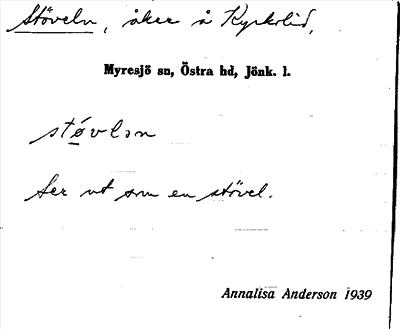 Stöveln, åker å Kyrkolid,
Myresjö sn, Östra hd, Jönk. l.
støvlən
Ser ut som en stövel.
Annalisa Anderson 1939